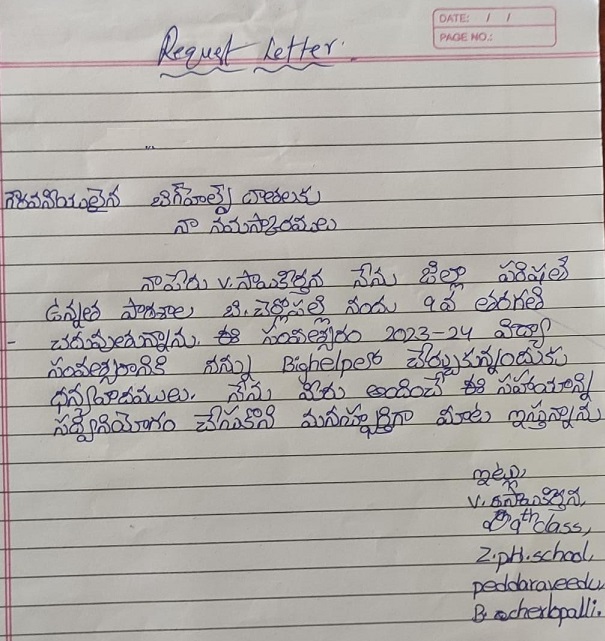 DATE: / /
PAGE NO.:
Request Letter.
గౌరవనీయులైన బిగ్‌హెల్ప్ దాతలకు
నా నమస్కారములు
నాపేరు V.సాయికీర్తన నేను జిల్లా పరిషత్
ఉన్నత పాఠశాల బి.చెర్లోపల్లి నందు 9వ తరగతి
చదువుతున్నాను. ఈ సంవత్సరం 2023-24 విద్యా
సంవత్సరానికి నన్ను Bighelpers చేర్చుకున్నందుకు
ధన్యవాదములు. నేను మీరు అందించే ఈ సహాయాన్ని
సద్వినియోగం చేసుకొని మనస్ఫూర్తిగా మాట ఇస్తున్నాను
ఇట్లు,
V.సాయికీర్తన,
9th class,
Z.pH.school,
peddaraveedu,
B.cherlopalli.